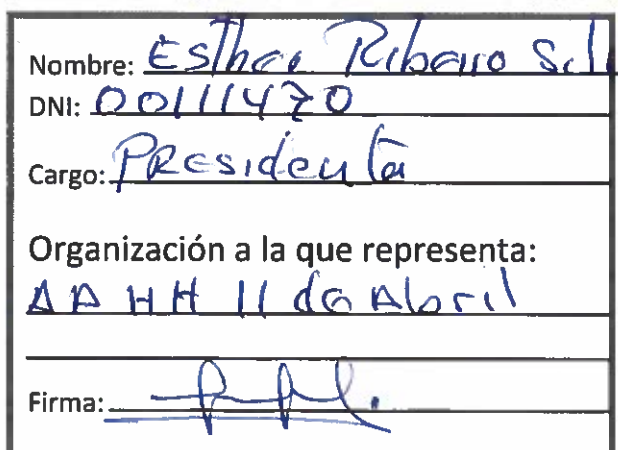 Nombre: Esther Ribeiro
DNI: 00111470
Cargo: Presidenta
Organización a la que representa:
AA HH 11 de Abril
Firma: